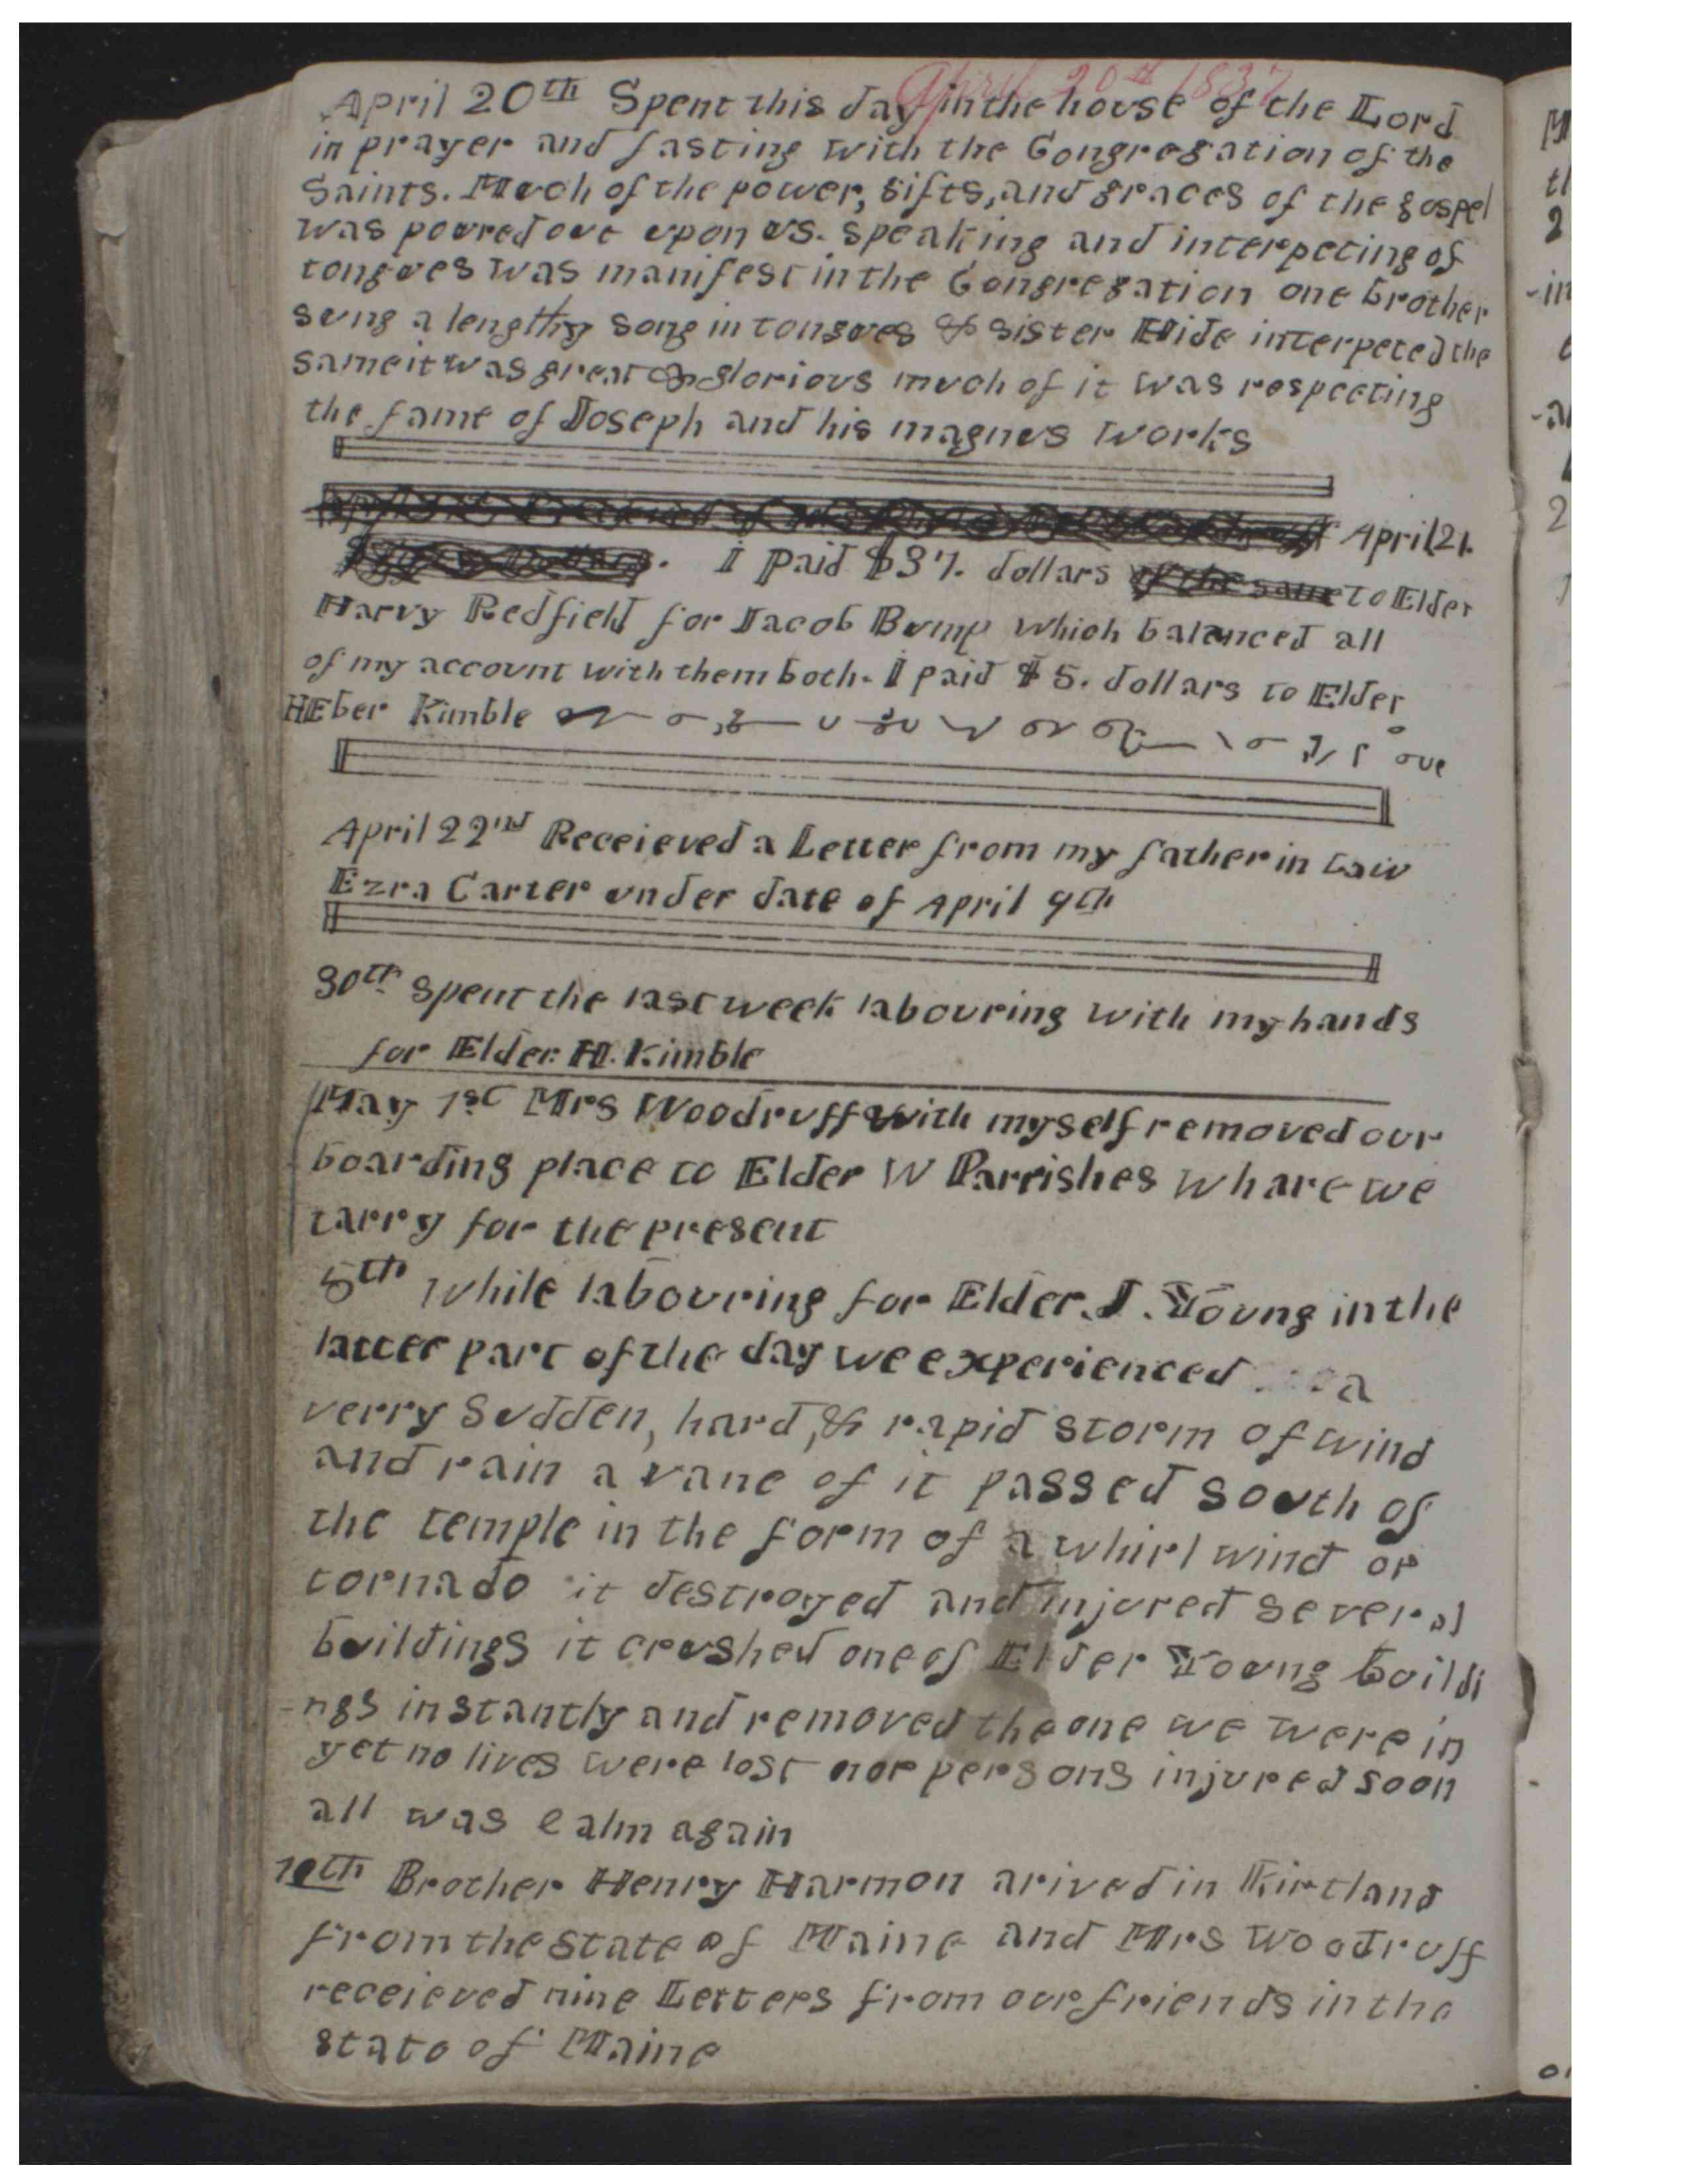 April 20th 1837
April 20th Spent this day in the house of the Lord
in prayer and fasting with the Congregation of the
Saints. Much of the power, gifts, and graces of the gospel
was poured out upon us. speaking and interpeting of
tongues was manifest in the Congregation one brother
sung a lengthy song in tongues & sister Hide interpeted the
same it was great & glorious much of it was respecting
the fame of Joseph and his magnus works
April 21.
I paid $37. dollars of the same to Elder
Harvy Redfield for Jacob Bump which balanced all
of my account with them both. I paid $5. dollars to Elder
HEber Kimble
April 22nd Receieved a Letter from my father in Law
Ezra Carter under date of April 9th
30th spent the last week labouring with my hands
for Elder H. Kimble
May 1st Mrs Woodruff with myself removed our
boarding place to Elder W Parrishes whare we
tarry for the present
5th while labouring for Elder J. Young in the
latter part of the day we experienced a
verry sudden, hard, & rapid storm of wind
and rain a vane of it passed south of
the temple in the form of a whirl wind or
tornado it destroyed and injured several
buildings it crushed one of Elder Young buildi
-ngs instantly and removed the one we were in
yet no lives were lost nor persons injured soon
all was calm again
10th Brother Henry Harmon arived in Kirtland
from the state of Maine and Mrs Woodruff
receieved nine Letters from our friends in the
state of Maine